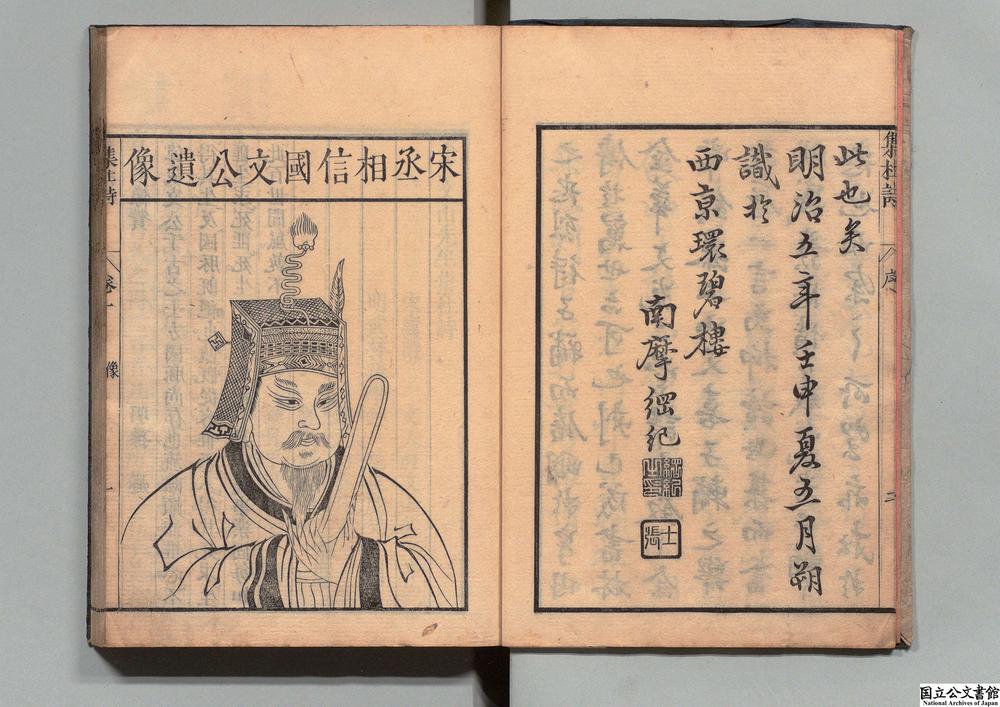 此也矣
明治五年壬申夏五月朔
識於
西京環碧樓
南摩綱紀
綱紀之印
士張
集杜詩
序
二
宋丞相信國文公遺像
集杜詩
卷一
像
一
国立公文書館
National Archives of Japan